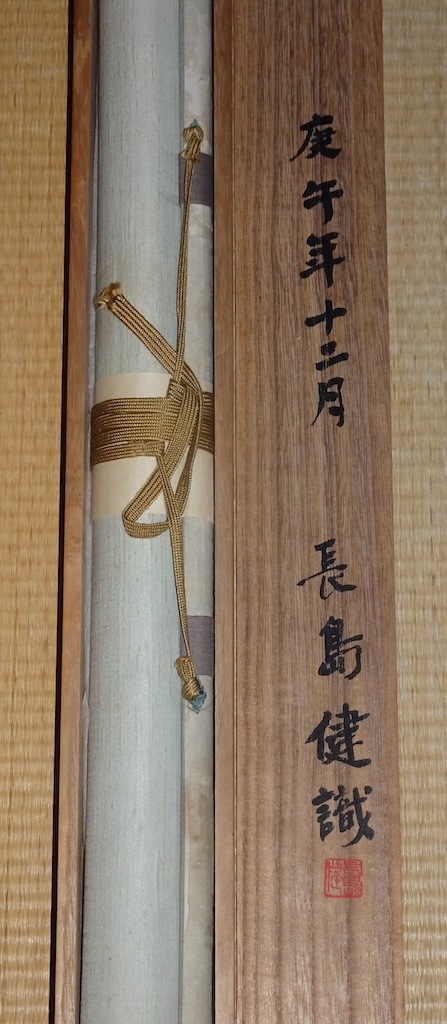 庚午年十二月　長島健識